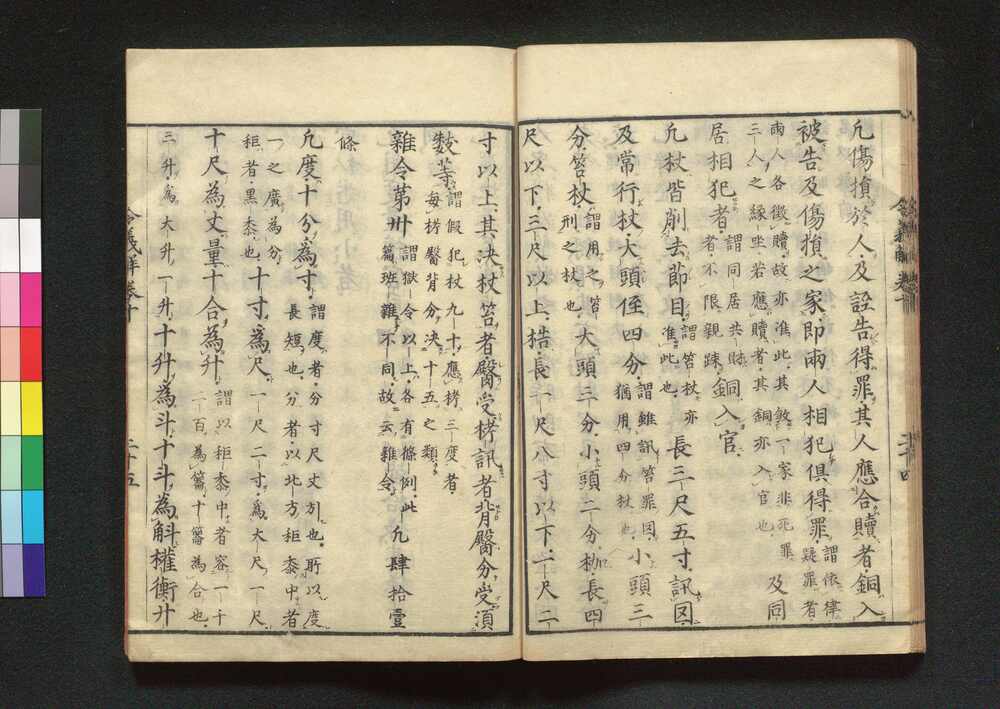 凢傷損於人及誣告得罪其人應合贖者銅入
被告及傷損之家即兩人相犯俱得罪謂依律疑罪者
兩人各徵贖故亦准此其煞一家非死罪
三人之縁坐若應贖者其銅亦入官也及同
居相犯者謂同居共財者不限親踈銅入官
凢杖皆削去節目謂笞杖亦准此也長三尺五寸訊囚
及常行杖大頭徑四分謂雖訊笞罪囚猶用四分杖也小頭三
分笞杖謂用之笞刑之杖也大頭三分小頭二分枷長四
尺以下三尺以上梏長一尺八寸以下一尺二
寸以上其决杖笞者臀受栲訊者背臀分受須
數等謂假犯杖九十應栲三度者每栲臀背分决十五之類
雜令第卅謂獄令以上各有條例此篇班雜不同故云雜令凢肆拾壹
條
凢度十分為寸謂度者分寸尺丈引也所以度長短也分者以北方秬黍中者
一之廣為分秬者黑黍也十寸為尺一尺二寸為大尺一尺
十尺為丈量十合為升謂以秬黍中者容一千二百為籥十籥為合也
三升為大升一升十升為斗十斗為斛權衡廿
令義解卷十
二十四
令義解卷十
二十五